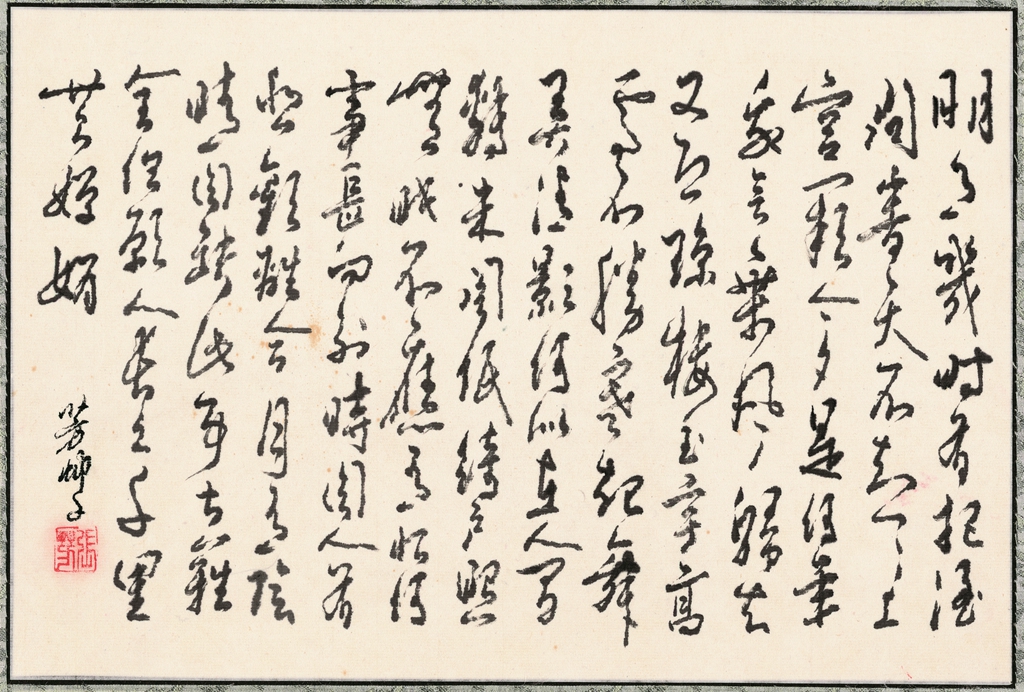 明月幾時有把酒
問青天不知天上
宮闕今夕是何年
我欲乘風歸去
又恐瓊樓玉宇高
處不勝寒起舞
弄清影何似在人間
轉朱閣低綺戶照
無眠不應有恨何
事長向別時圓人有
悲歡離合月有陰
晴圓缺此事古難
全但願人長久千里
共嬋娟